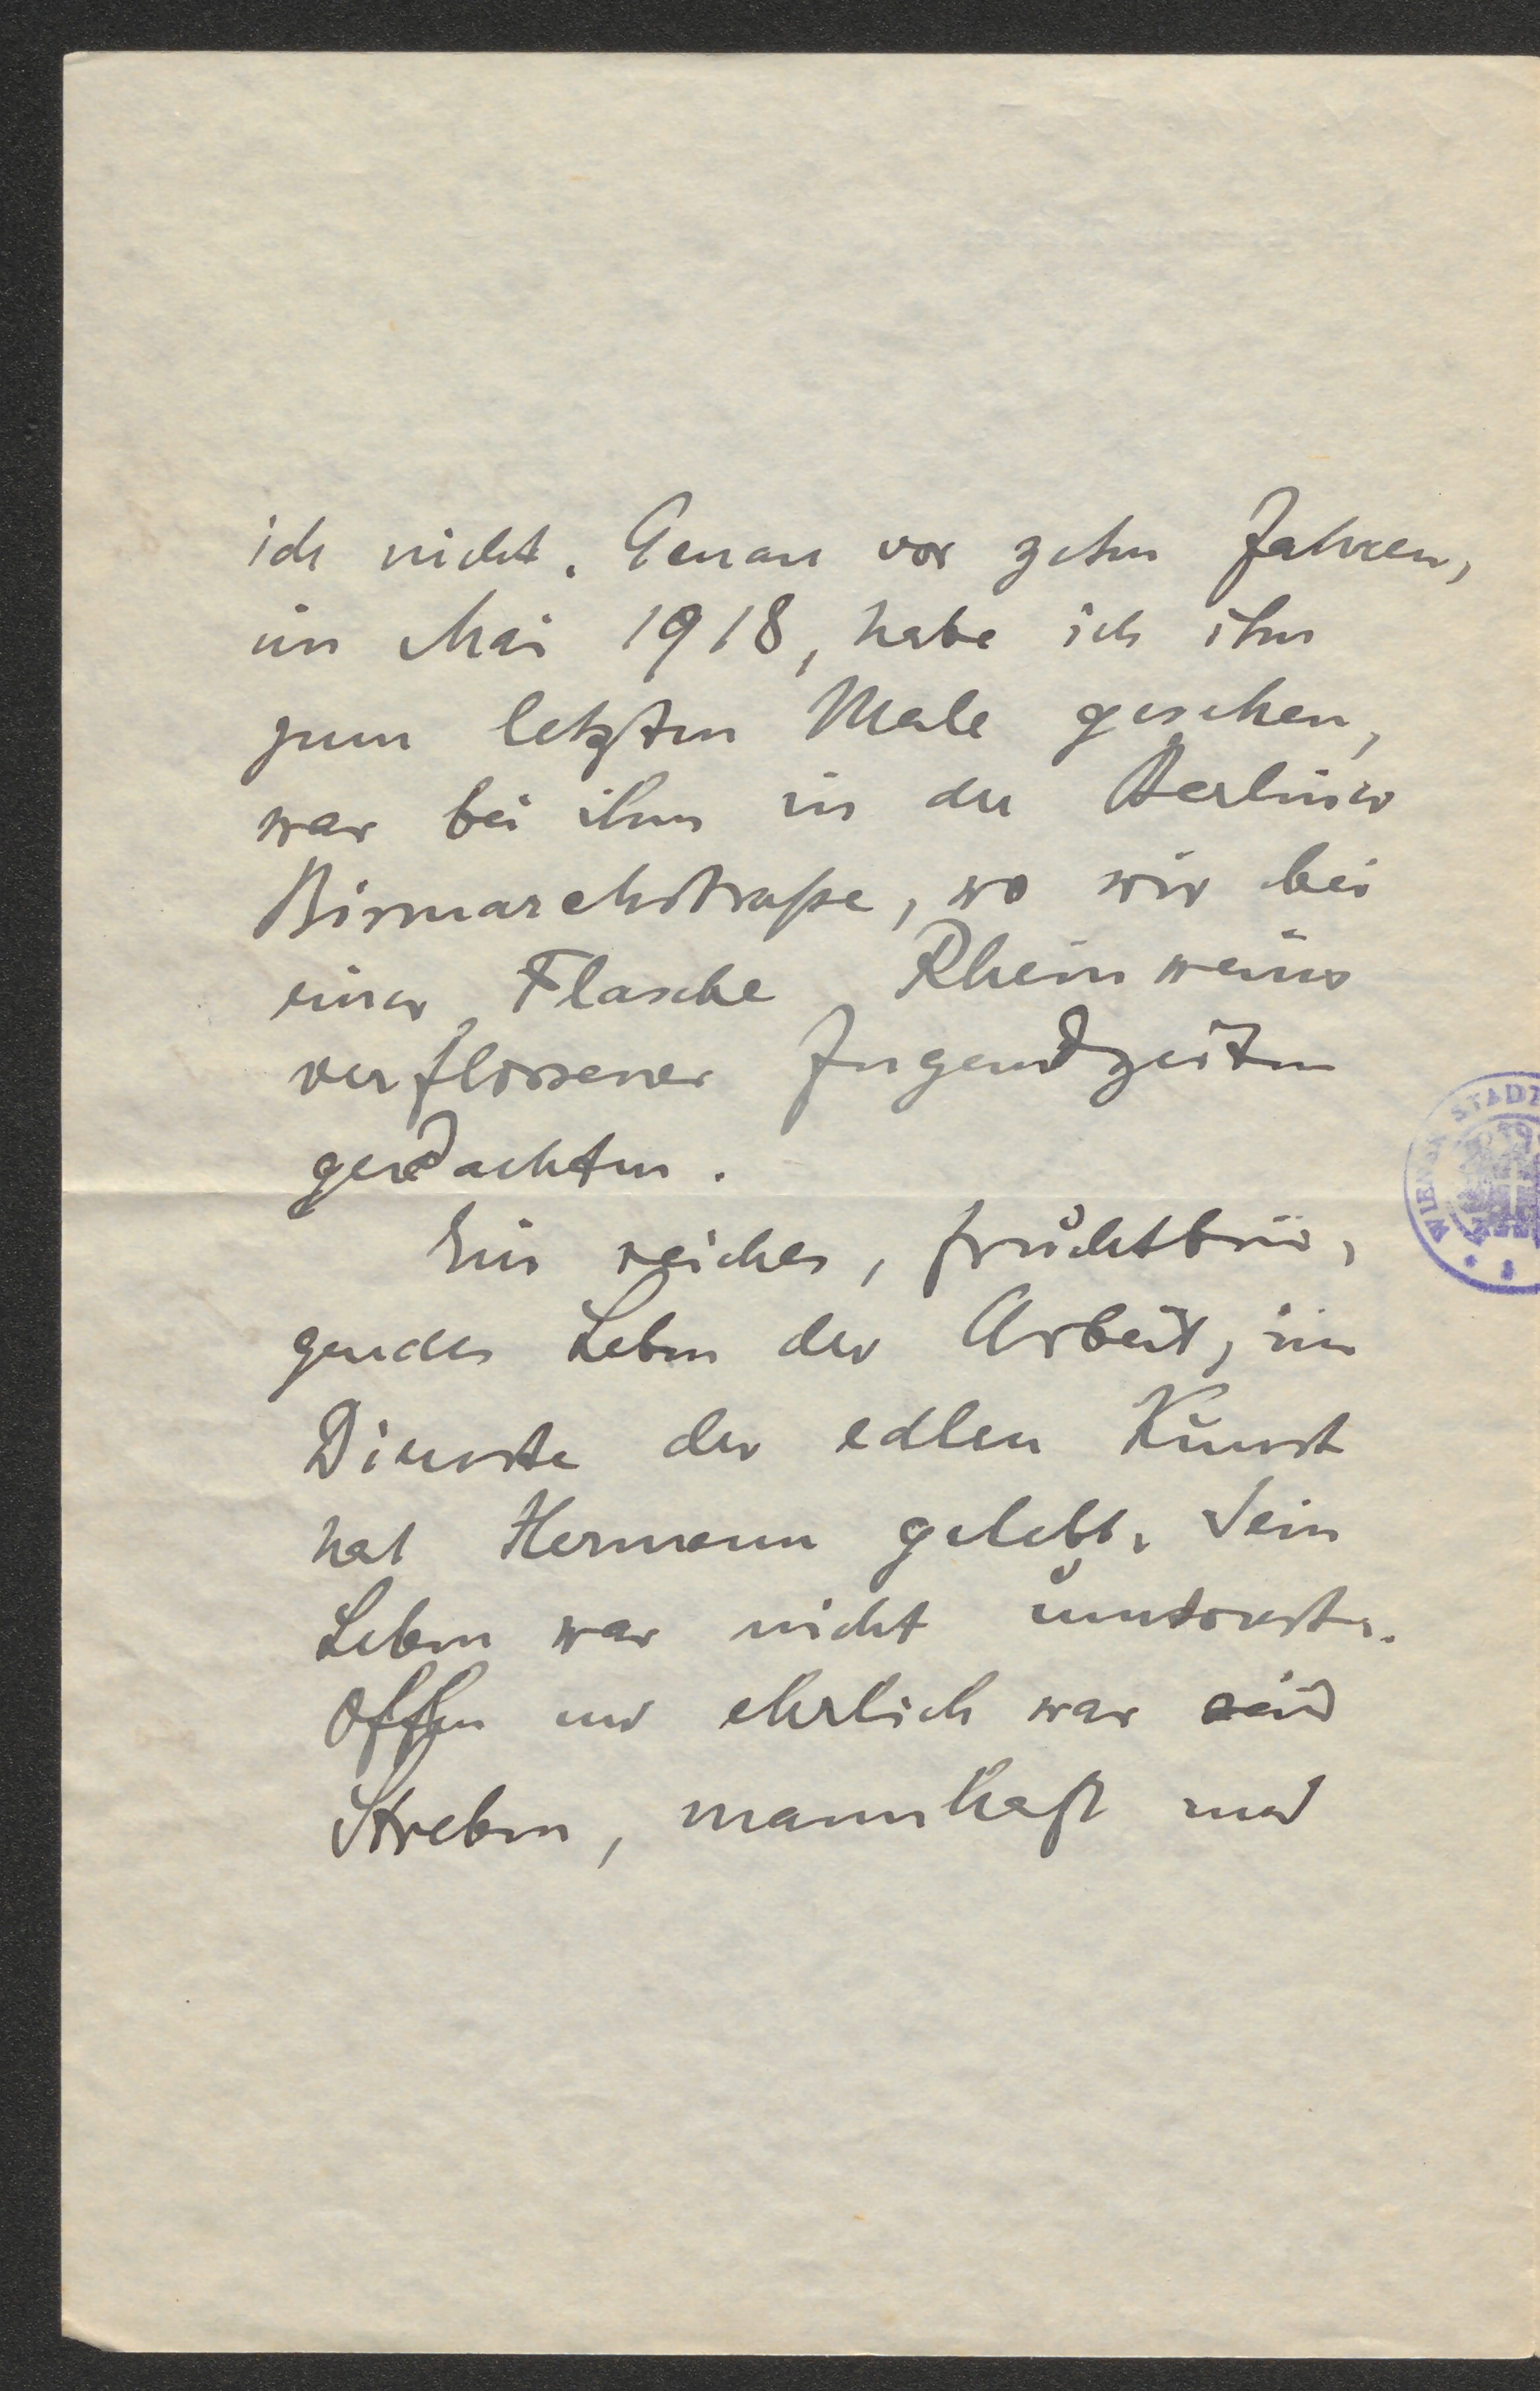 ich nicht. Genau vor zehn Jahren,
im Mai 1918, habe ich ihn
zum letzten Male gesehen,
war bei ihm in der Berliner
Bismarckstraße, wo wir bei
einer Flasche Rheinweins
verflossener Jugendzeiten
gedachten.
Ein reiches, fruchtbrin,
gendes Leben der Arbeit, im
Dienste der edlen Kunst
hat Hermann gelebt. Sein
Leben war nicht umsonst.
Offen und ehrlich war sein
Streben, mannhaft und
WIENER STADT